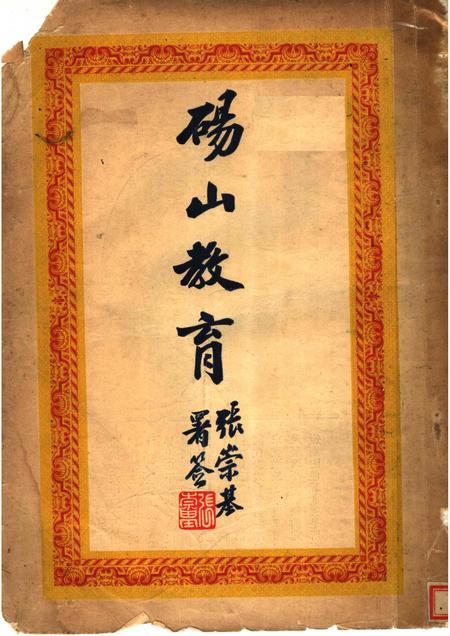 碭山教育
張崇基
署签